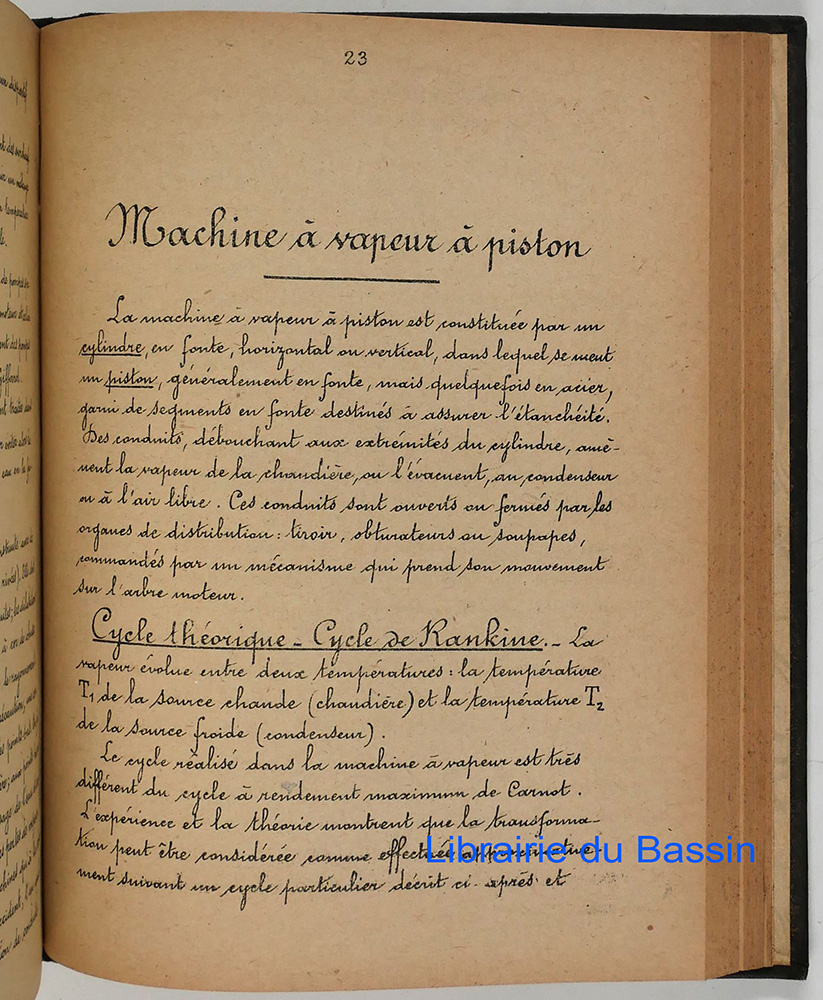 23
Machine à vapeur à piston
La machine à vapeur à piston est constituée par un
cylindre, en fonte, horizontal ou vertical, dans lequel se meut
un piston, généralement en fonte, mais quelquefois en acier,
garni de segments en fonte destinés à assurer l'étanchéité.
Des conduits, débouchant aux extrémités du cylindre, amè-
nent la vapeur de la chaudière, ou l'évacuent, au condenseur
ou à l'air libre. Ces conduits sont ouverts ou fermés par les
organes de distribution : tiroir, obturateurs ou soupapes,
commandés par un mécanisme qui prend son mouvement
sur l'arbre moteur.
Cycle théorique - Cycle de Rankine. - La
vapeur évolue entre deux températures : la température
T1 de la source chaude (chaudière) et la température T2
de la source froide (condenseur).
Le cycle réalisé dans la machine à vapeur est très
différent du cycle à rendement maximum de Carnot.
L'expérience et la théorie montrent que la transforma-
tion peut être considérée comme effectuée approximative-
ment suivant un cycle particulier décrit ci-après et
Librairie du Bassin